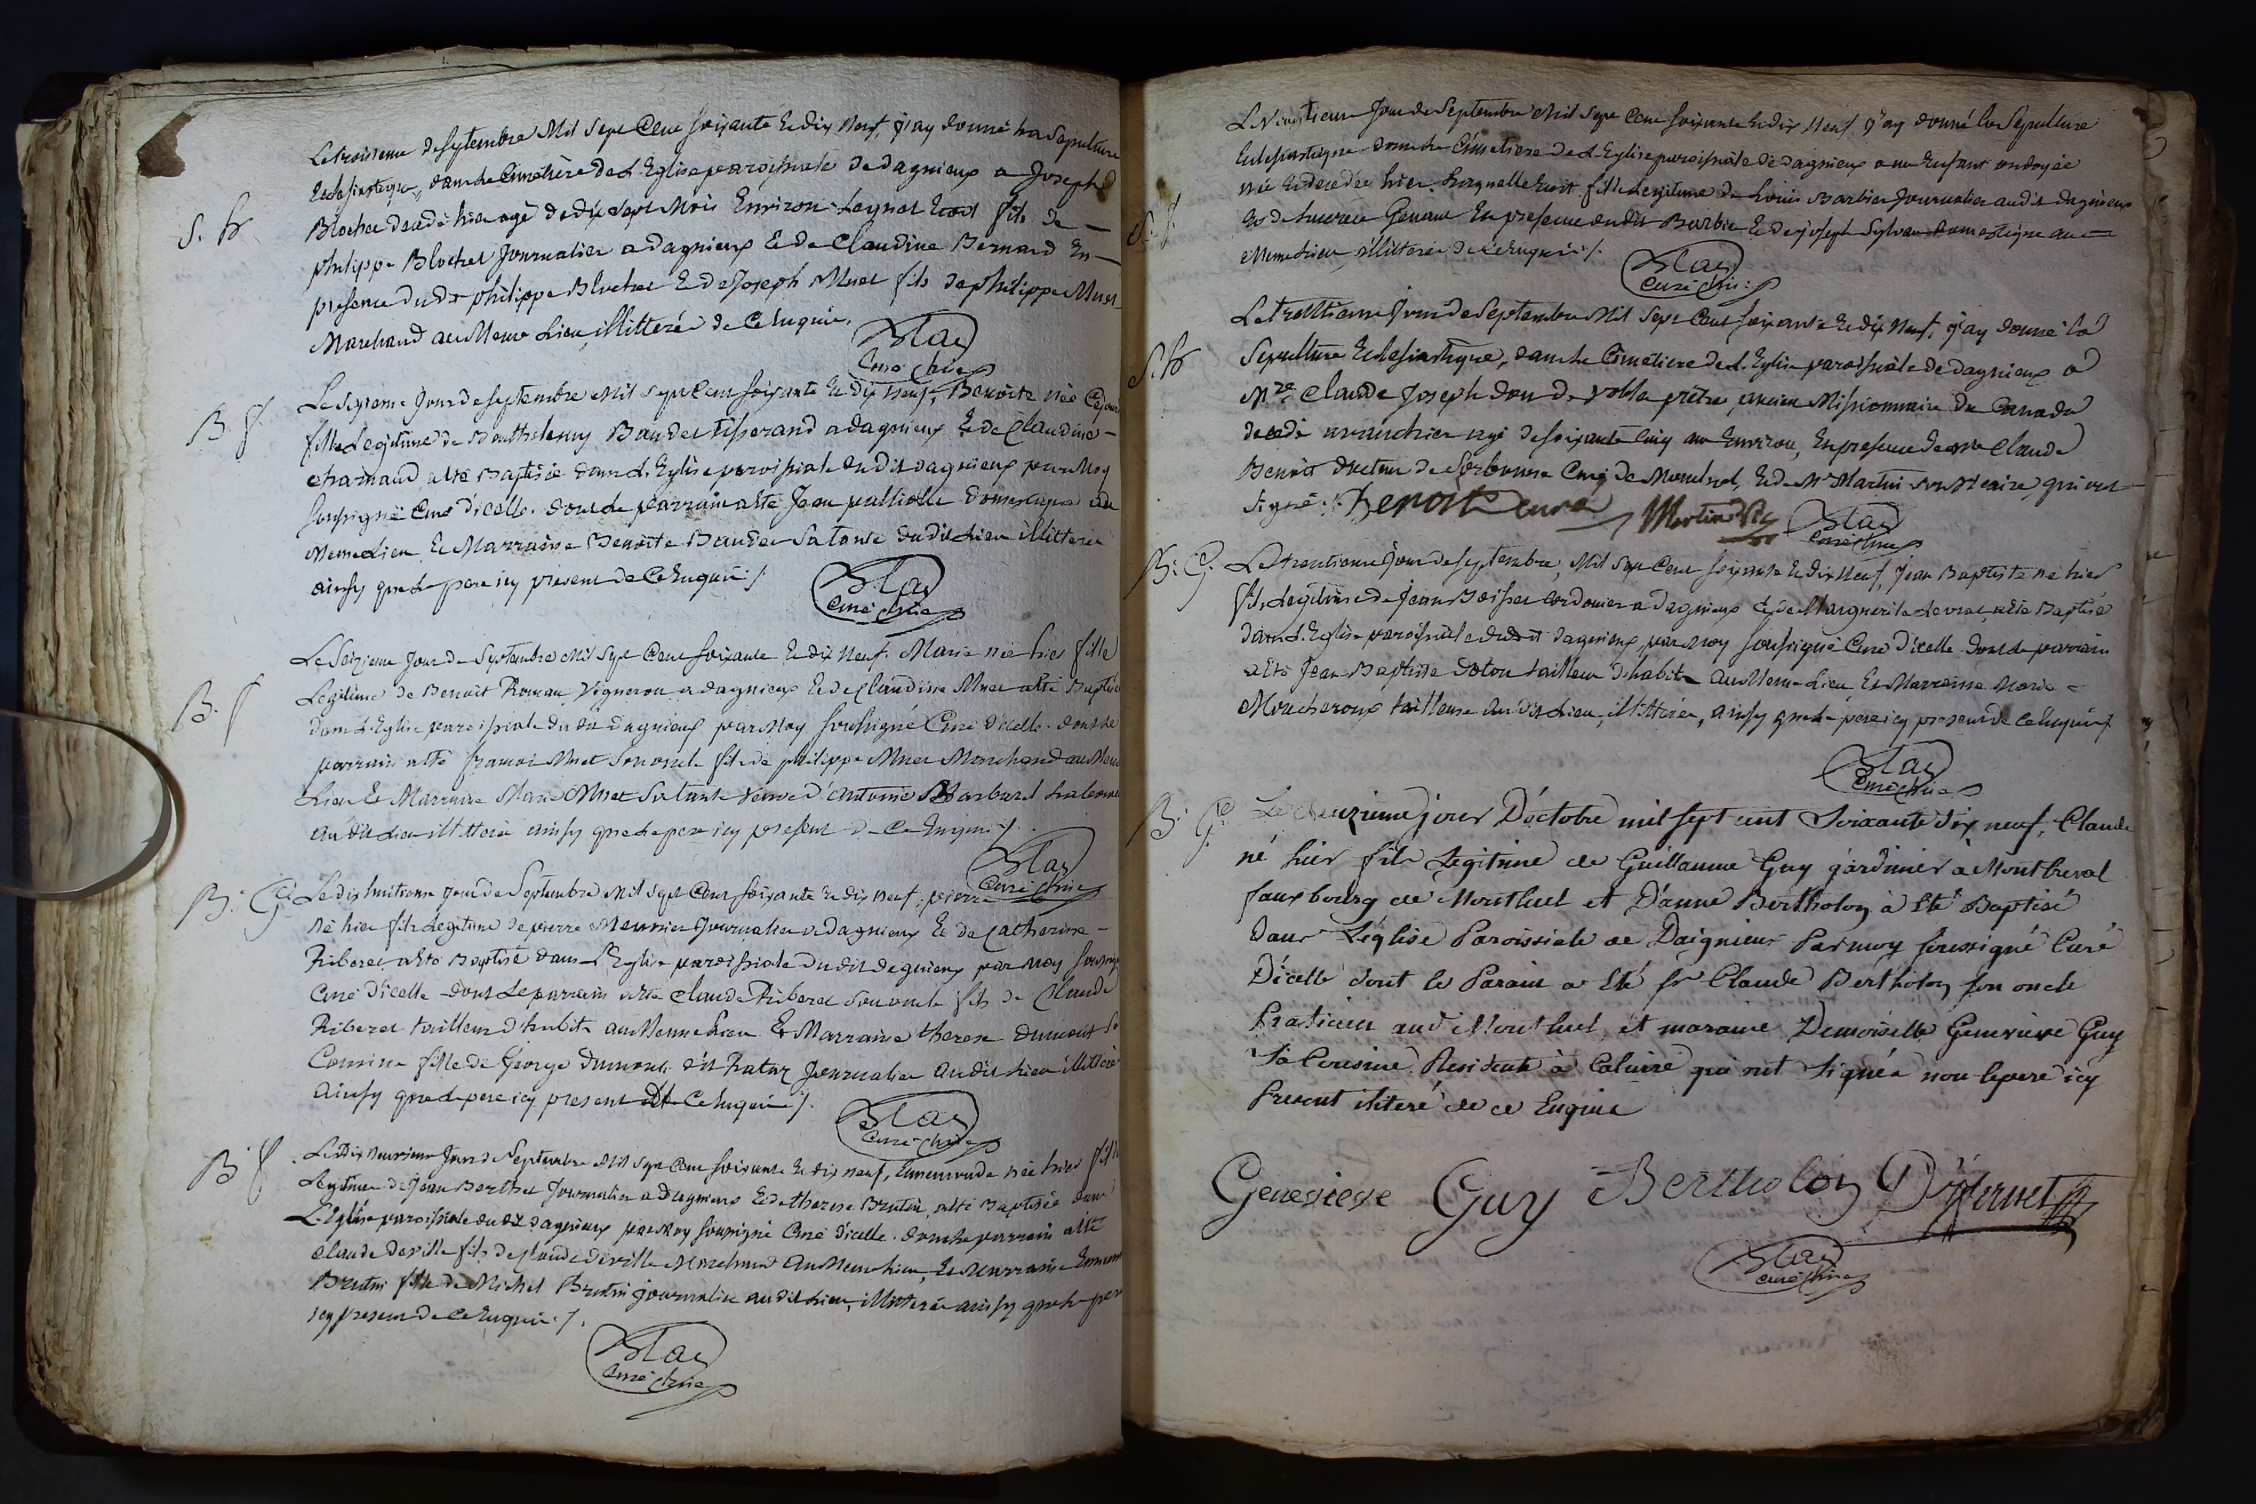 Le troisieme de septembre Mil Sept Cent soixante et dix Neuf, j'ay donné la sepulture
Ecclesiastique, dans le Cimetière de L'Eglise paroissiale de dagnieux a Joseph
S. h
Blochet decedé hier agé de dix sept Mois Environ Lequel Etoit fils de
philippe Blochet Journalier a dagnieux et de Claudine Bernard En
presence du dt philippe Blochet et de Joseph Muet fils de philippe Muet
Marchand au Meme Lieu, illitteré de Ce Enquis.
Blay
Curé
Le Septieme Jour de septembre Mil sept Cent soixante et dix Neuf, Benoite née
B. f.
fille Legitime de Barthelemy Baudet tisserand a dagnieux et de Claudine
Charnaud, a été Baptisée dans L'Eglise paroissiale du dit dagnieux par Moy
soussigné Curé d'icelle. dont le parrain a été Jean palliolle Domestique au
Meme Lieu et Marraine Benoite Baudet sa tante du dit Lieu illitteré
ainsy que Le pere icy présent de Ce Enquis ./.
Blay
Curé
Le Seizieme Jour de Septembre Mil Sept Cent soixante et dix Neuf. Marie née hier fille
B. f
Legitime de Benoit Roman Vigneron a dagnieux et de Claudine Muet a été Baptisée
dans L'Eglise paroissiale du dit dagnieux par Moy soussigné Curé d'icelle. dont le
parrain a été françois Muet son oncle fils de philippe Muet Marchand au Meme
Lieu et Marraine Marie Muet sa tante Veuve d'antoine Barbaret
au dit Lieu illitteré ainsy que Le pere icy présent de Ce Enquis ./.
Blay
Curé
B. G. Le dix huitieme Jour de Septembre Mil Sept Cent soixante et dix Neuf. pierre
né hier fils Legitime de pierre Meunier Journalier a dagnieux et de Catherine
Riberet a été Baptisé dans L'Eglise paroissiale du dit dagnieux par Moy
Curé d'icelle dont Le parrain a été Claude Riberet son oncle fils de Claude
Riberet tailleur d'habit au Meme Lieu et Marraine therese dumont sa
Cousine fille de George dumont Journalier au dit Lieu illitteré
ainsy que Le pere icy présent de Ce Enquis ./.
Blay
Curé
B f
Le Dix Neuvieme Jour de Septembre Mil Sept Cent soixante et dix Neuf, née hier fille
Legitime de Jean Berthet Journalier a dagnieux et de therese Brutin, a été Baptisée dans
L'Eglise paroissiale du dt dagnieux par Moy soussigné Curé d'icelle. dont le parrain a été
Claude deville fils de Claude deville Marchand au Meme Lieu, et Marraine
Brutin fille de Michel Brutin journalier au dit Lieu, illitteré ainsy que le pere
icy présent de Ce Enquis ./.
Blay
Curé
Le Vingtieme Jour de Septembre Mil Sept Cent soixante et dix Neuf j'ay donné la Sepulture
Ecclesiastique dans le Cimetiere de L'Eglise paroissiale de dagnieux a un Enfant ondoyée
née et decedée hier, Laquelle Etoit fille Legitime de Louis Barbier Journalier au dit dagnieux
S. f
et de Lucrece Genaut En presence du dit Barbier et de joseph Sylvan domestique au
Meme Lieu, illitteré de Ce Enquis ./.
Blay
Curé
Le trentieme Jour de Septembre Mil Sept Cent soixante et dix Neuf, j'ay donné la
S. h
Sepulture Ecclesiastique, dans le Cimetiere de L'Eglise paroissiale de dagnieux a
Mre Claude Joseph prêtre, ancien Missionnaire du Canada
decedé avanthier agé de soixante Cinq ans Environ, En presence de Mre Claude
Benoit docteur de Sorbonne Curé de Montluel, et de Mr Martin son Vicaire, qui ont
signé ./. Benoit curé Martin Vic Blay
Curé
B. G. Le trentieme Jour de septembre, Mil Sept Cent soixante et dix Neuf, Jean Baptiste né hier
fils Legitime de Jean Cordonier a dagnieux et de Marguerite Levrat, a été Baptisé
dans L'Eglise paroissiale du dit dagnieux, par Moy soussigné Curé d'icelle dont le parrain
a été Jean Baptiste tailleur d'habit au Meme Lieu et Marraine Marie
Moucheroux tailleuse du dit Lieu, illitteré, ainsy que Le pere icy présent de Ce Enquis ./.
Blay
Curé
B. G. Le deuzieme jour D'octobre mil sept cent soixante dix neuf, Claude
né hier fils Legitime de Guillaume Guy gardinier à Montheval
fauxbourg de Montluel et D'anne Bertholon à été Baptisé
dans L'église Paroissiale de Daignieux Par moy soussigné Curé
D'icelle dont le Parain a été sr Claude Bertholon son oncle
Praticien aud Montluel, et maraine Demoiselle Genevieve Guy
Sa Cousine Residente à Caluire qui ont Signés non le pere icy
present iliteré de ce Enquis
Genevieve Guy Bertholon
Blay
Curé